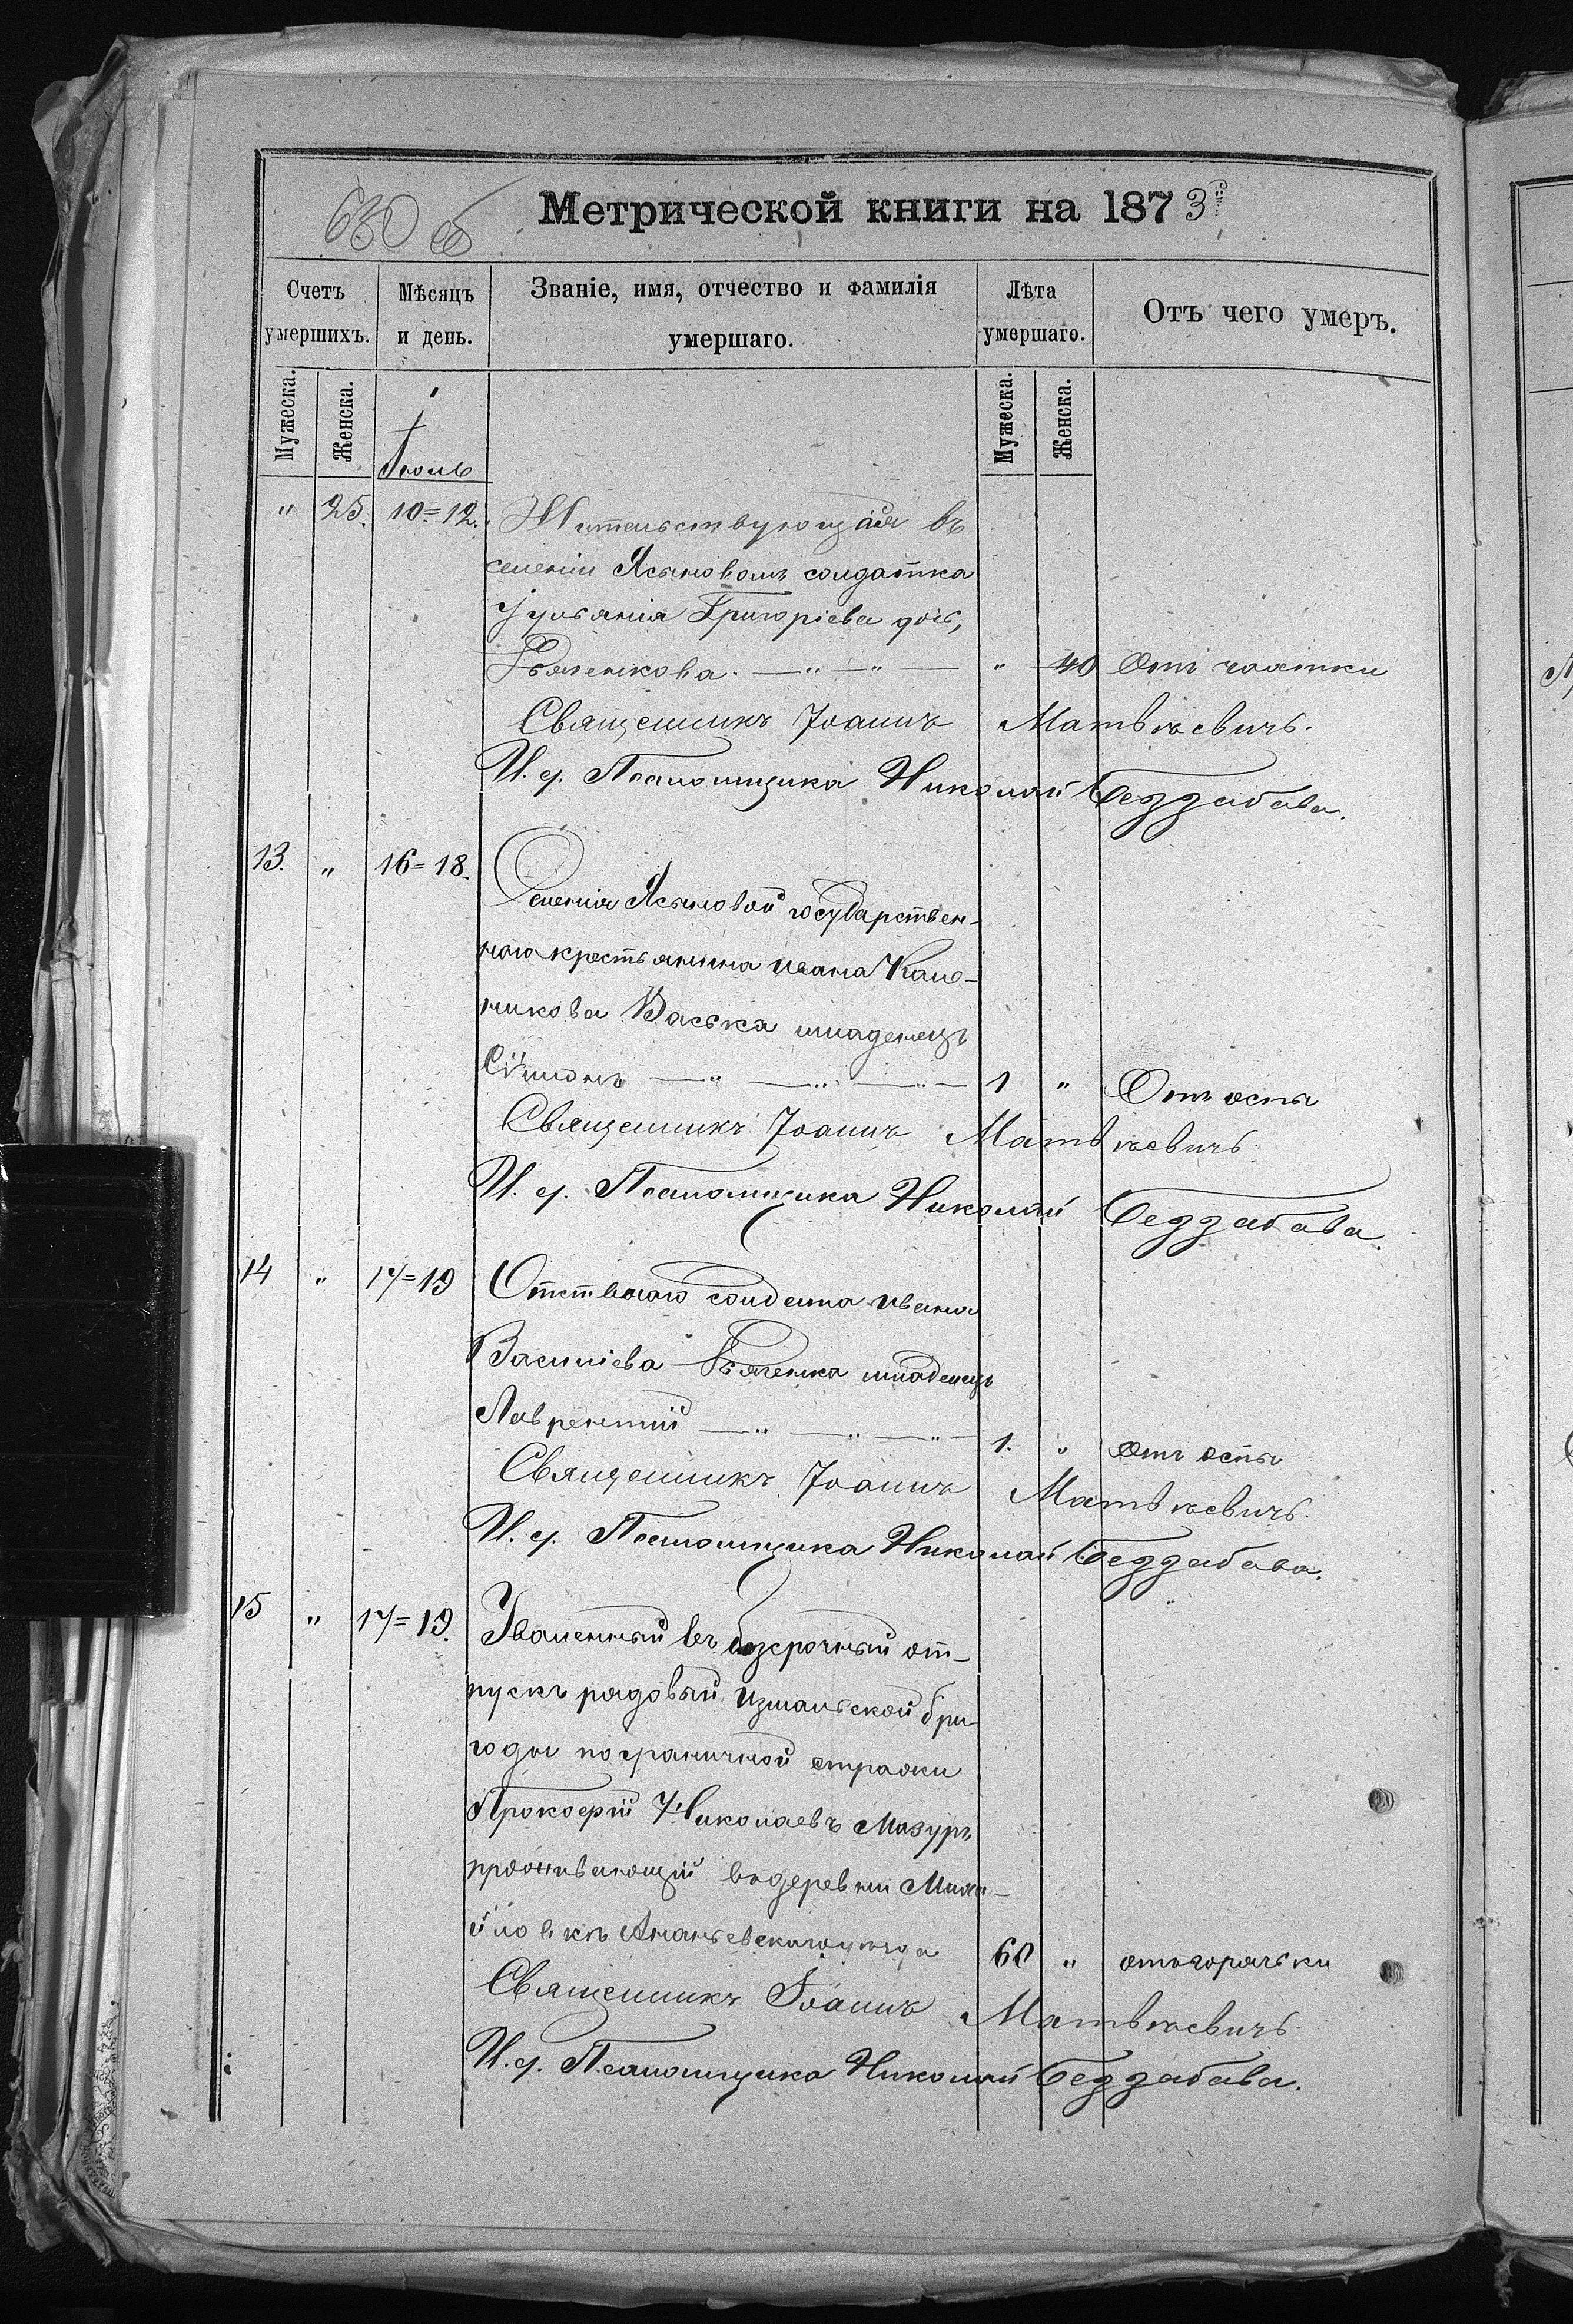 630 об
Метрической книги на 1873 г.
Счетъ умершихъ. Мѣсяцъ и день. Званіе, имя, отчество и фамилія умершаго. Лѣта умершаго. Отъ чего умеръ.
Мужеска. Женска. Мужеска. Женска.
Іюль
" 25. 10=12. Жительствующая въ
селеніи Ясыновомъ солдатка
Іуліанія Григоріева дочь,
— " — " — " 40 Отъ чахотки
Священникъ Іоаннъ Матвѣевичъ.
И. д. Псаломщика Николай Беззабава.
13. " 16=18. Селенія Ясыновой государствен-
наго крестьянина Ивана
Васька младенецъ
Симонъ — " — " — " — 1 " Отъ оспы
Священникъ Іоаннъ Матвѣевичъ.
И. д. Псаломщика Николай Беззабава.
14 " 17=19 Отставнаго солдата Ивана
Василіева младенецъ
Лаврентій — " — " — " — 1. " Отъ оспы
Священникъ Іоаннъ Матвѣевичъ.
И. д. Псаломщика Николай Беззабава.
15 " 17=19. Уволенный въ безсрочный от-
пускъ рядовый Измаильской бри-
гады пограничной стражи
Прокофій Николаевъ Мазуръ
проживающій въ деревни Михай-
ловкѣ Ананьевскаго уѣзда 60 " отъ горячки
Священникъ Іоаннъ Матвѣевичъ.
И. д. Псаломщика Николай Беззабава.